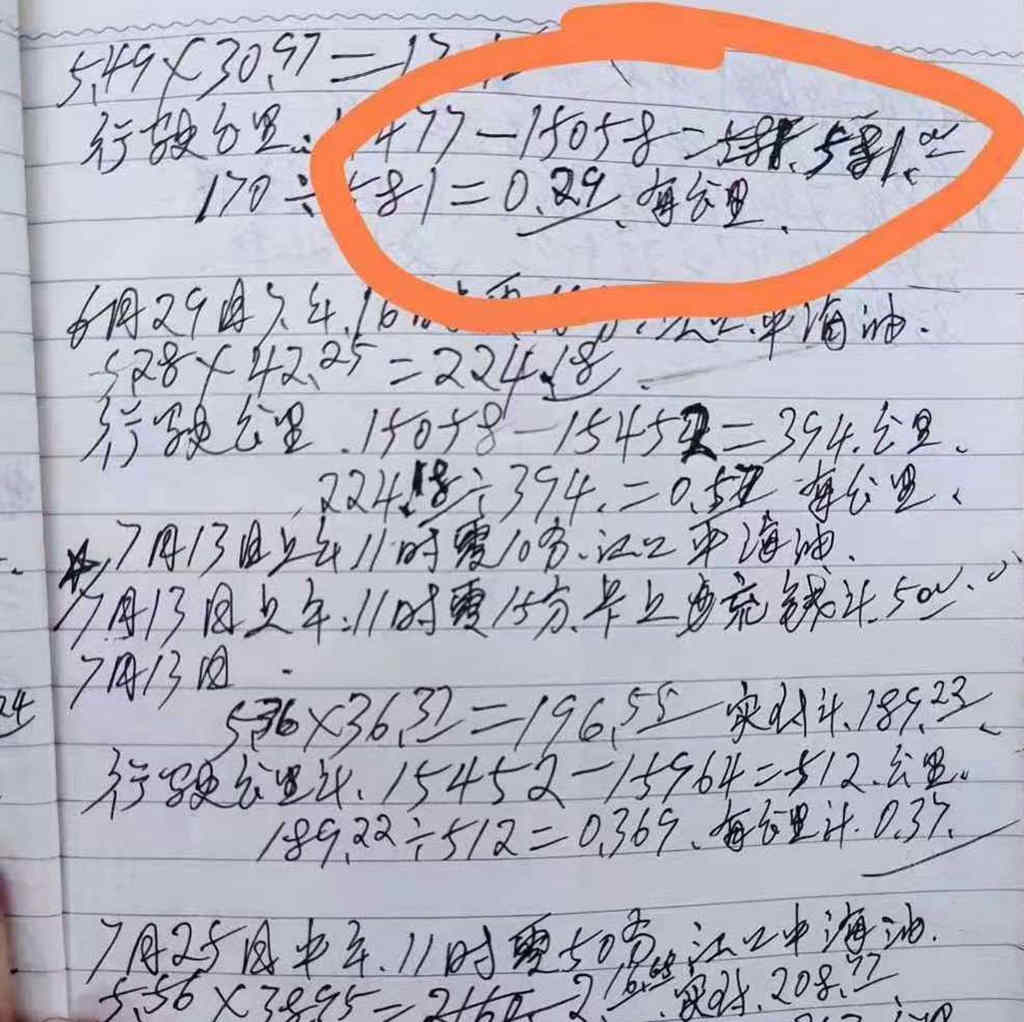 5.49×30.97=17
行驶公里:1477-15058=581.581.
170÷581=0.29.每公里.
6月29日下午.16时零 中海油.
5.28×42.25=224.18
行驶公里.15058-15452=394.公里.
224.18÷394.=0.57 每公里.
7月13日上午11时零10分.江口中海油.
7月13日上午.11时零15分.卡上要充钱计.500.
7月13日.
24
5.36×36.37=196.55 实付计.189.23.
行驶公里计.15452-15964=512.公里.
189.22÷512=0.369.每公里计.0.37.
7月25日中午.11时零50分.江口中海油.
5.56×38.95=216 实付.208.77